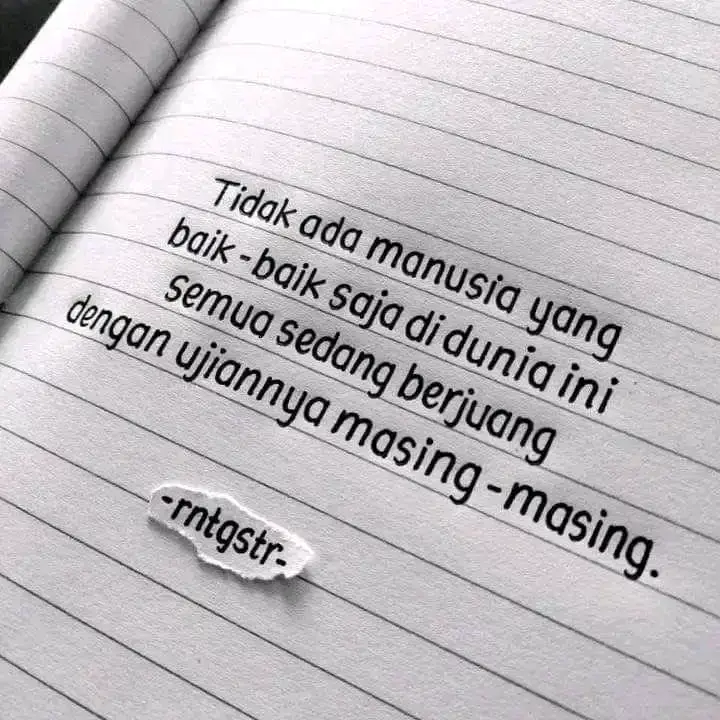 Tidak ada manusia yang
baik - baik saja di dunia ini
semua sedang berjuang
dengan ujiannya masing - masing.
-rntgstr-